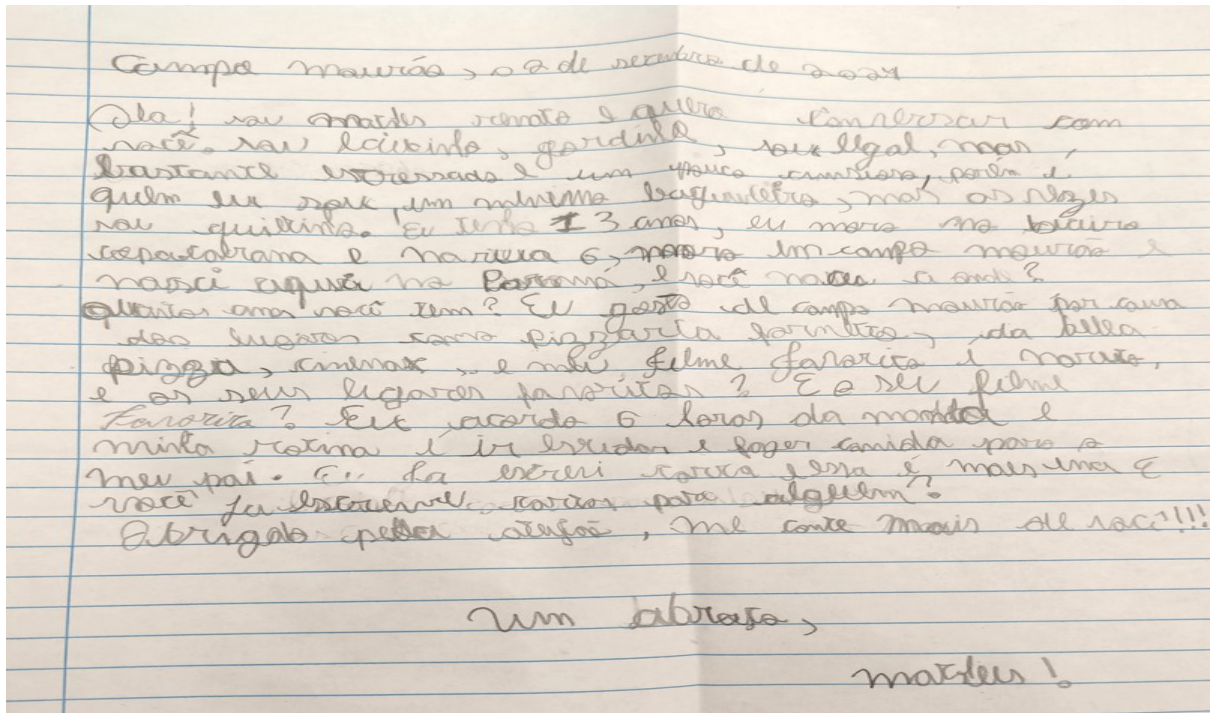 Campo mourão, 02 de setembro de 2024
Ola! sou matheus renato e quero conversar com
você. sou baixinho, gordinho, sou legal, mas
bastante estressado e um pouco curioso, porém é
quem eu sou, um menino bagunceiro, mas as vezes
sou quietinho. Eu tenho 13 anos, eu moro no bairro
copacabrana e nariera 6, moro em campo mourão e
nasci aqui no Parraná, e você naceu a onde?
quantos anos você tem? Eu gosto de campo mourão por causa
dos lugares como pizzaria forneto, da bella
pizza, cinemax, e meu filme favorito é naruto,
e os seus lugares favoritos? E o seu filme
favorito? Eu acordo 6 horas da manhã e
minha rotina é ir estudar e fazer comida para o
meu pai. E Ja escrevi carta essa é mais uma E
você ja escreveu cartas para alguem?
Obrigado pela atenção, me conte mais de você!!!
um abraço,
matheus!